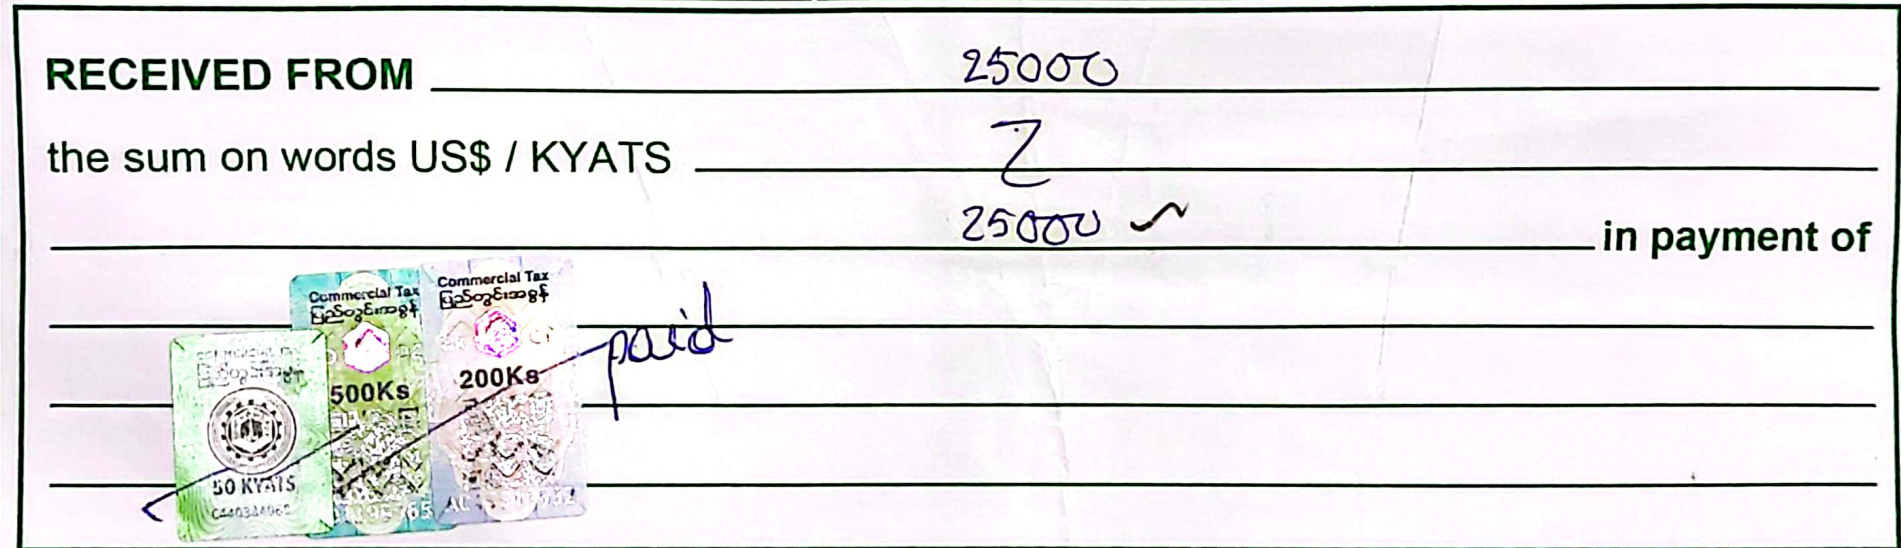 RECEIVED FROM 25000
the sum on words US$ / KYATS Z
25000 in payment of
Commercial Tax
ပြည်တွင်းအခွန်
500Ks
Commercial Tax
ပြည်တွင်းအခွန်
200Ks
paid
50 KYATS